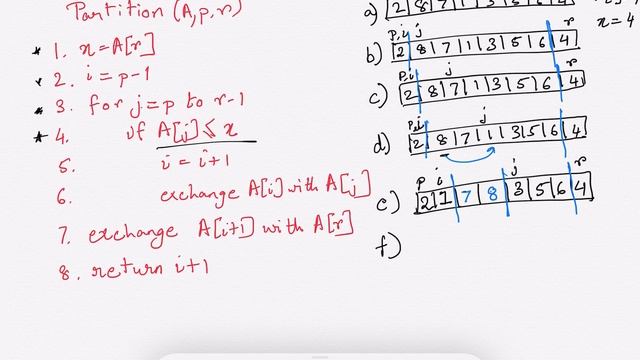 Partition (A,p,r)
1. x=A[r]
2. i=p-1
3. for j=p to r-1
4. if A[j]≤x
5. i=i+1
6. exchange A[i] with A[j]
7. exchange A[i+1] with A[r]
8. return i+1
a) 2 8 7 1 3 5 6 4
x=4
p,i j r
b) 2 8 7 1 3 5 6 4
p,i j r
c) 2 8 7 1 3 5 6 4
p,i j r
d) 2 8 7 1 3 5 6 4
p i j r
e) 2 1 7 8 3 5 6 4
f)